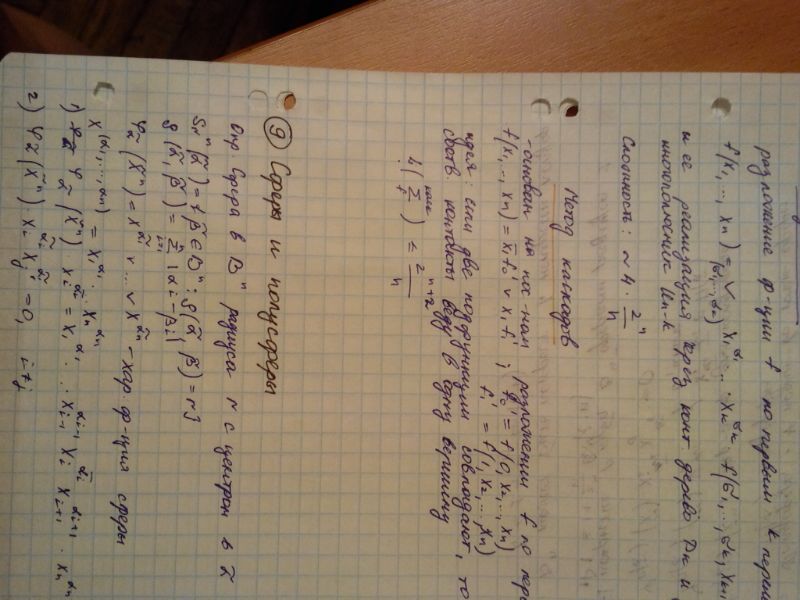 разложение ф-ции f по первым k
f(x₁,...,xₙ) = ⋁_(σ₁,...,σₖ) x₁^σ₁ ... xₖ^σₖ · f(σ₁,...,σₖ, xₖ₊₁
и её реализация через конт дерево Dₖ и
многополюсник Uₙ₋ₖ
Сложность: ~ 4 · 2ⁿ/n
Метод каскадов
-основан на разложении f по
f(x₁,...,xₙ) = x̄₁f₀' ∨ x₁f₁' ; f₀' = f(0, x₂,...,xₙ)
f₁' = f(1, x₂,...,xₙ)
идея: если две подфункции совпадают, то
контакты ведут в одну вершину
≤ 2ⁿ⁺²/n
⑨ Сферы и полусферы
Опр. Сфера в Bⁿ радиуса r с центром в α̃
Sᵣⁿ(α̃) = {β̃ ∈ Bⁿ : ρ(α̃, β̃) = r}
ρ(α̃, β̃) = Σᵢ₌₁ⁿ |αᵢ - βᵢ|
φ_α̃(x̃ⁿ) = x^α̃₁ ∨ ... ∨ x^α̃ₙ - хар. ф-ция сферы
x^(α₁,...,αₙ) = x₁^α₁ ... xₙ^αₙ
1) φ_α̃(x̃ⁿ) · xᵢ^ᾱᵢ = x₁^α₁ ... xᵢ₋₁^αᵢ₋₁ xᵢ^ᾱᵢ xᵢ₊₁^αᵢ₊₁ ... xₙ^αₙ
2) φ_α̃(x̃ⁿ) xᵢ^ᾱᵢ xⱼ^ᾱⱼ = 0, i≠j